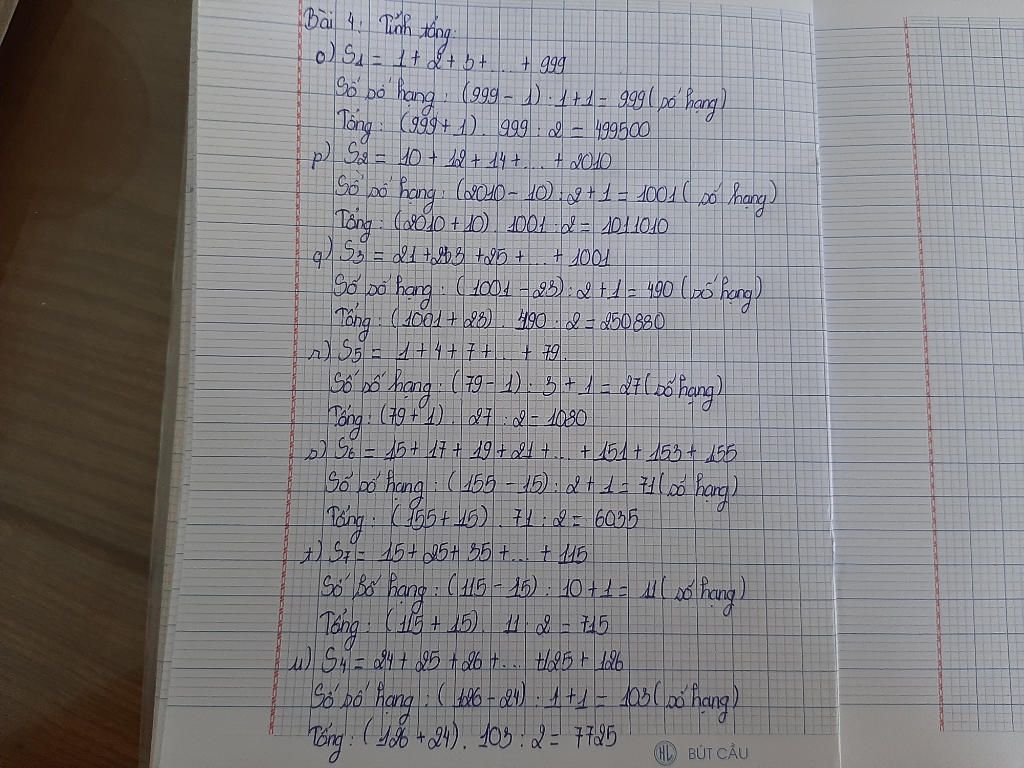 Bài 4: Tính tổng:
o) S1 = 1 + 2 + 3 + ... + 999
Số số hạng : (999 - 1) : 1 + 1 = 999 (số hạng)
Tổng : (999 + 1) . 999 : 2 = 499500
p) S2 = 10 + 12 + 14 + ... + 2010
Số số hạng : (2010 - 10) : 2 + 1 = 1001 (số hạng)
Tổng : (2010 + 10) . 1001 : 2 = 1011010
q) S3 = 21 + 233 + 25 + ... + 1001
Số số hạng : (1001 - 23) : 2 + 1 = 490 (số hạng)
Tổng : (1001 + 23) . 490 : 2 = 250880
r) S5 = 1 + 4 + 7 + ... + 79.
Số số hạng : (79 - 1) : 3 + 1 = 27 (số hạng)
Tổng : (79 + 1) . 27 : 2 = 1080
s) S6 = 15 + 17 + 19 + 21 + ... + 151 + 153 + 155
Số số hạng : (155 - 15) : 2 + 1 = 71 (số hạng)
Tổng : (155 + 15) . 71 : 2 = 6035
t) S7 = 15 + 25 + 35 + ... + 115
Số số hạng : (115 - 15) : 10 + 1 = 11 (số hạng)
Tổng : (115 + 15) . 11 : 2 = 715
u) S4 = 24 + 25 + 26 + ... + 125 + 126
Số số hạng : (126 - 24) : 1 + 1 = 103 (số hạng)
Tổng : (126 + 24) . 103 : 2 = 7725
HL BÚT CẦU